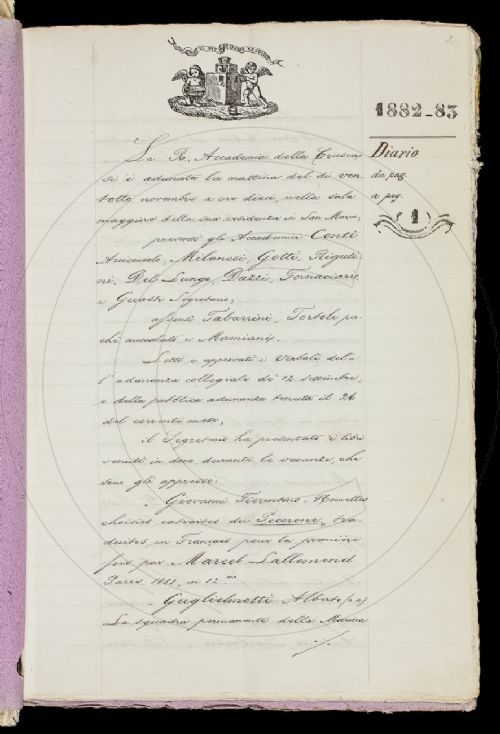 1882-83
Diario
da pag.
a pag.
1
La R. Accademia della Crusca
si è adunata la mattina del dì ven
totto novembre a ore dieci, nella sala
maggiore della sua residenza in San Marco,
presenti gli Accademici Conti
Arciconsolo, Milanesi, Gotti, Riguti-
ni, Del Lungo, Dazzi, Fornaciari,
e Guasti Segretario;
assenti Tabarrini, Tortoli per-
chè ammalato e Mamiani.
Letti e approvati i Verbali del-
l'adunanza collegiale de' 12 settembre,
e della pubblica adunanza tenuta il 26
del corrente mese;
il Segretario ha presentato i libri
venuti in dono durante le vacanze, che
son gli appresso:
Giovanni Fiorentino - Nouvelles
choisies extraites du Pecorone, tra-
duites en Français pour la première
fois par Marcel Lallemend
Paris, 1881, in 12.mo
Guglielmotti Alberto
La squadra permanente della Marina